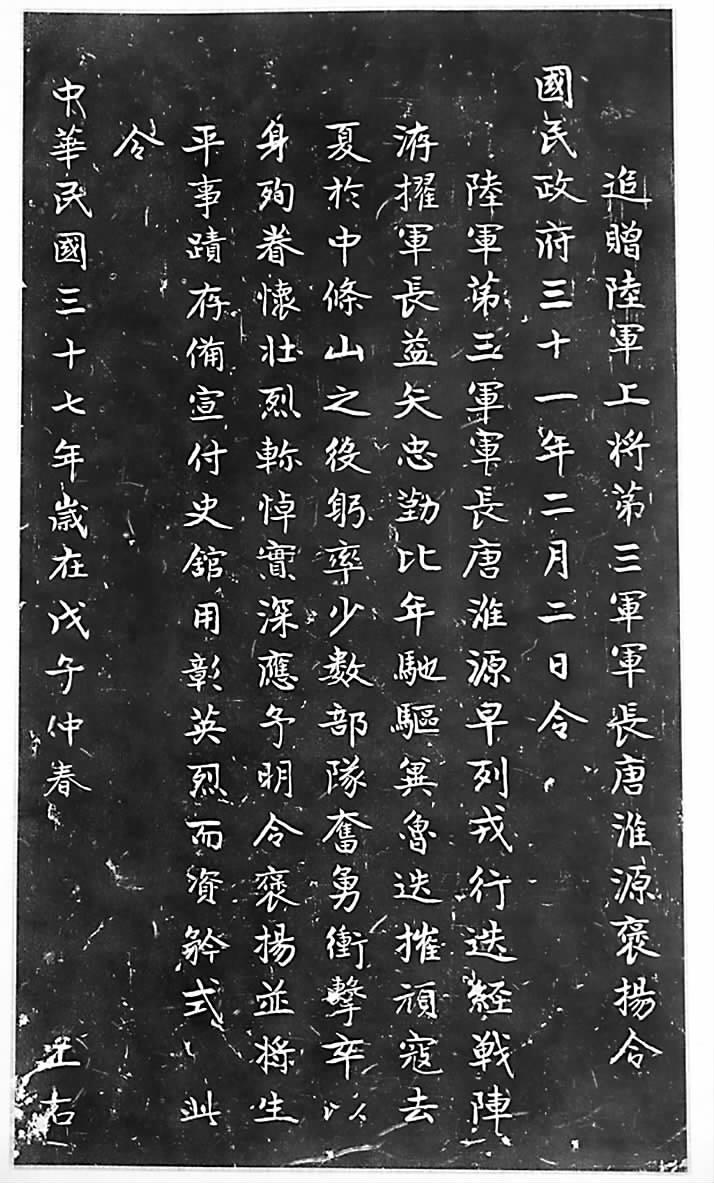 追贈陸軍上將第三軍軍長唐淮源褒揚令
國民政府三十一年二月二日令
陸軍第三軍軍長唐淮源早列戎行迭經戰陣
洊擢軍長益矢忠勤比年馳驅冀魯迭摧頑寇去
夏於中條山之役躬率少數部隊奮勇衝擊卒以
身殉眷懷壯烈軫悼實深應予明令褒揚並將生
平事蹟存備宣付史館用彰英烈而資矜式此
令
中華民國三十七年歲在戊子仲春 王右